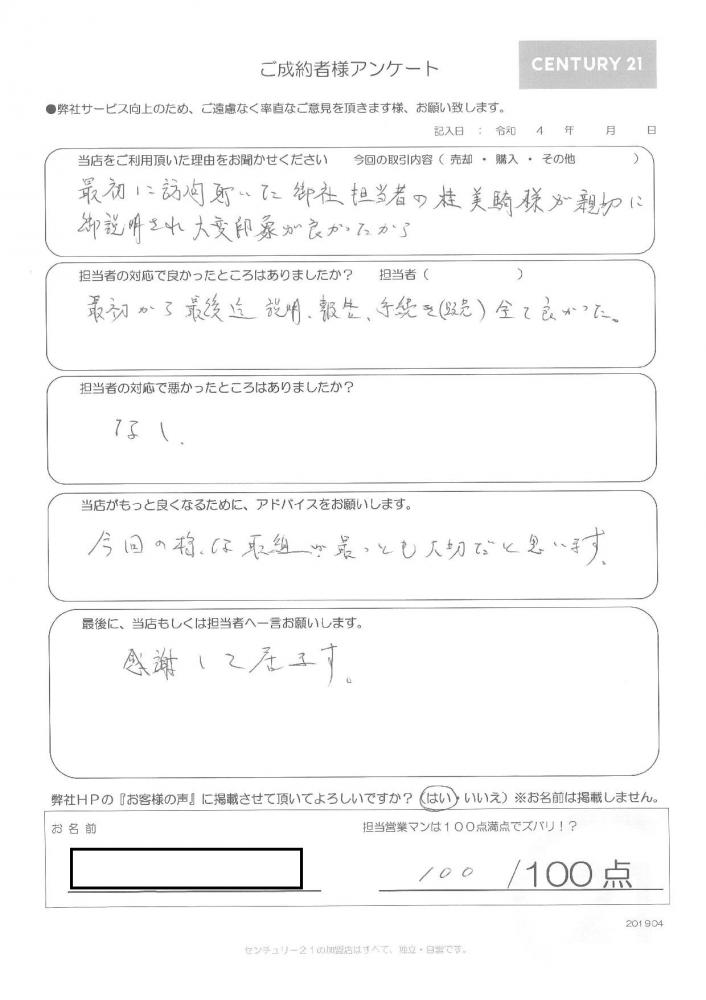 ご成約者様アンケート
CENTURY 21
●弊社サービス向上のため、ご遠慮なく率直なご意見を頂きます様、お願い致します。
記入日 : 令和 4 年 月 日
当店をご利用頂いた理由をお聞かせください 今回の取引内容( 売却 ・ 購入 ・ その他 )
最初に訪問頂いた御社担当者の桂美騎様が親切に
御説明され大変印象が良かったから
担当者の対応で良かったところはありましたか? 担当者( )
最初から最後迄説明、報告、手続き(販売)全て良かった。
担当者の対応で悪かったところはありましたか?
なし、
当店がもっと良くなるために、アドバイスをお願いします。
今回の様な取組が最っとも大切だと思います。
最後に、当店もしくは担当者へ一言お願いします。
感謝して居ます。
弊社HPの『お客様の声』に掲載させて頂いてよろしいですか?(はい・いいえ)※お名前は掲載しません。
お名前
担当営業マンは100点満点でズバリ!?
100 /100点
201904
センチュリー21の加盟店はすべて、独立・自営です。